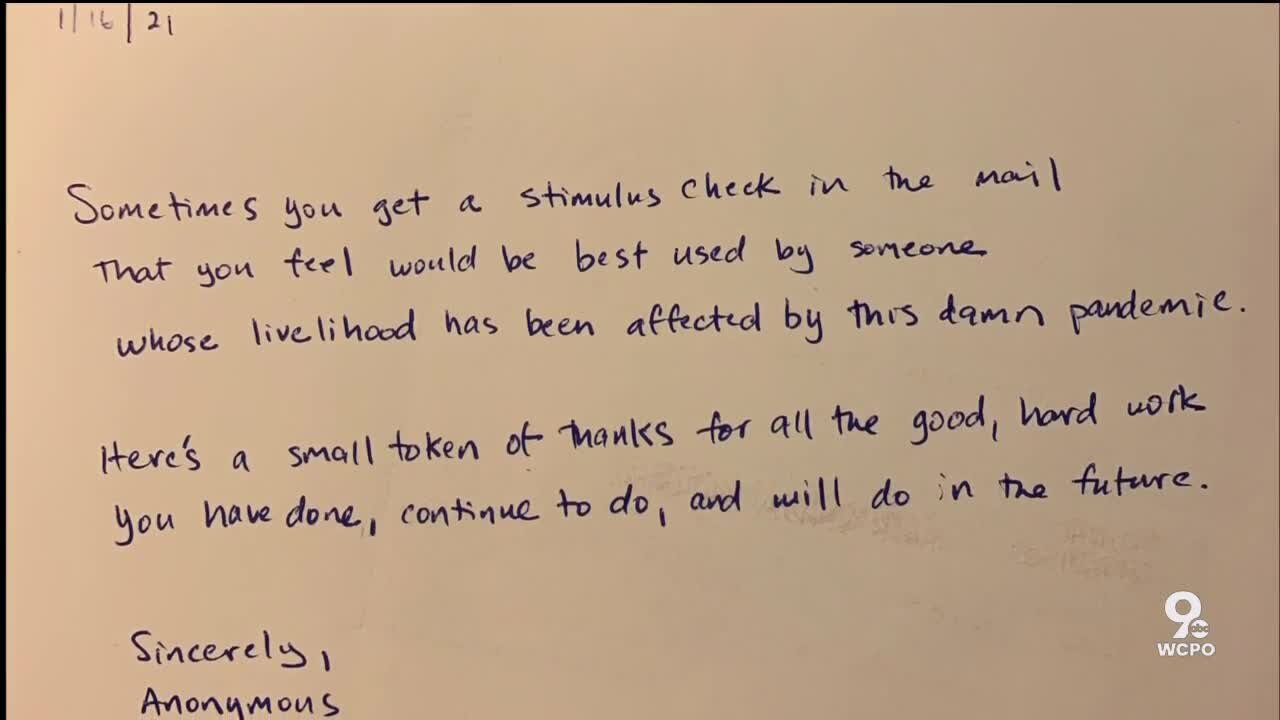 1/16/21
Sometimes you get a stimulus check in the mail
That you feel would be best used by someone
whose livelihood has been affected by this damn pandemic.
Here's a small token of thanks for all the good, hard work
you have done, continue to do, and will do in the future.
Sincerely,
Anonymous
9 abc
WCPO